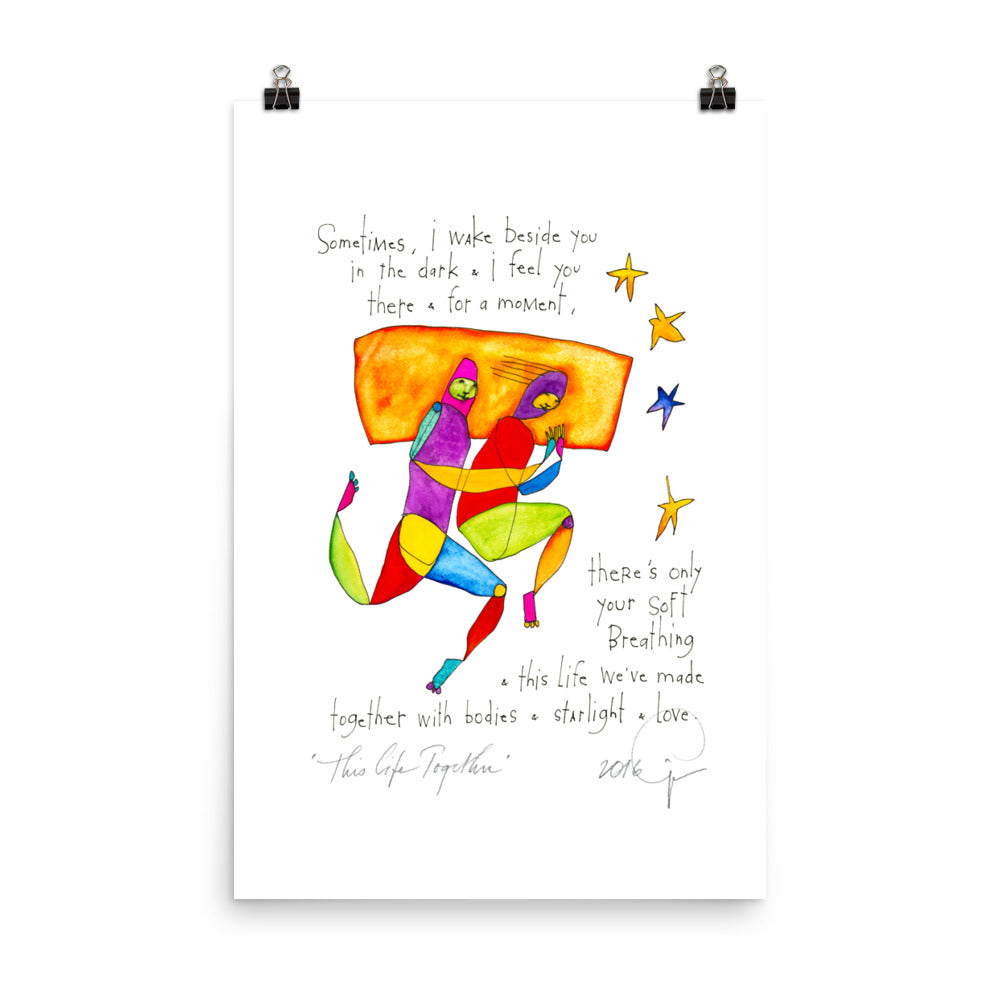 Sometimes, i wake beside you
in the dark & i feel you
there & for a moment,
there's only
your soft
Breathing
& this life we've made
together with bodies & starlight & love.
'This Life Together'
2016